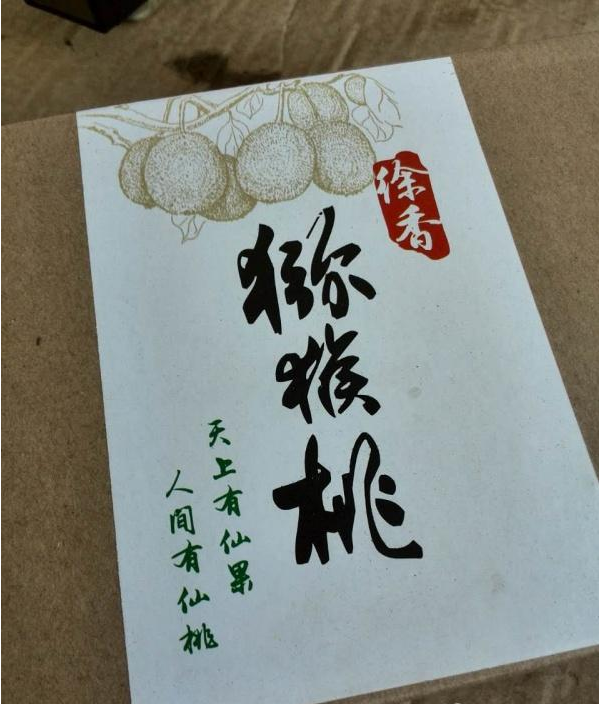 徐香
猕猴桃
天上有仙果
人间有仙桃